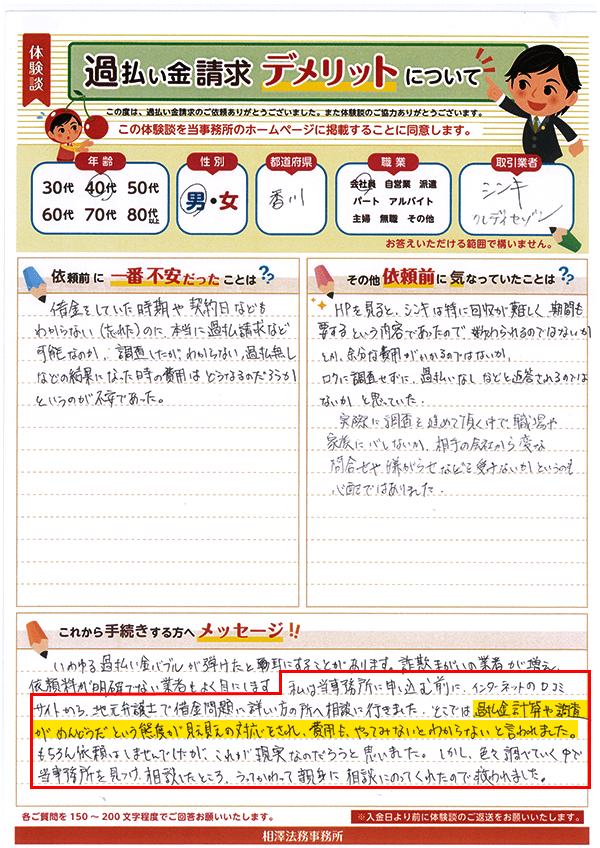 体験談
過払い金請求 デメリットについて
この度は、過払い金請求のご依頼ありがとうございました。また体験談のご協力ありがとうございます。
この体験談を当事務所のホームページに掲載することに同意します。
年齢
30代 40代 50代
60代 70代 80代以上
性別
男・女
都道府県
香川
職業
会社員 自営業 派遣
パート アルバイト
主婦 無職 その他
取引業者
シンキ
クレディセゾン
お答えいただける範囲で構いません。
依頼前に一番不安だったことは??
借金をしていた時期や契約日なども
わからない(忘れた)のに、本当に過払請求など
可能なのか、調査したがわからない、過払無し
などの結果になった時の費用はどうなるのだろうか
というのが不安であった。
その他依頼前に気なっていたことは??
HPを見ると、シンキは特に回収が難しく、期間も
要するという内容であったので断わられるのではないか
とか、余分な費用がかかるのではないか、
ロクに調査せずに、過払いなしなどと返答されるのでは
ないかと思っていた。
実際に調査を進めて頂く中で、職場や
家族にバレないか、相手の会社から変な
問合せや嫌がらせなどを受けないかというのも
心配ではありました。
これから手続きする方へメッセージ!!
いわゆる過払い金バブルが弾けたと耳にすることがあります。詐欺まがいの業者が増え、
依頼料が明確でない業者もよく目にします。私は当事務所に申し込む前に、インターネットの口コミ
サイトから、地元弁護士で借金問題に詳しい方の所へ相談に行きました。そこでは過払金計算や調査
がめんどうだという態度が見え見えの対応をされ、費用も、やってみないとわからないと言われました。
もちろん依頼はしませんでしたが、これが現実なのだろうと思いました。しかし、色々調べていく中で
当事務所を見つけ、相談したところ、うってかわって親身に相談にのってくれたので救われました。
各ご質問を150~200文字程度でご回答お願いいたします。
※入金日より前に体験談のご返送をお願いいたします。
相澤法務事務所